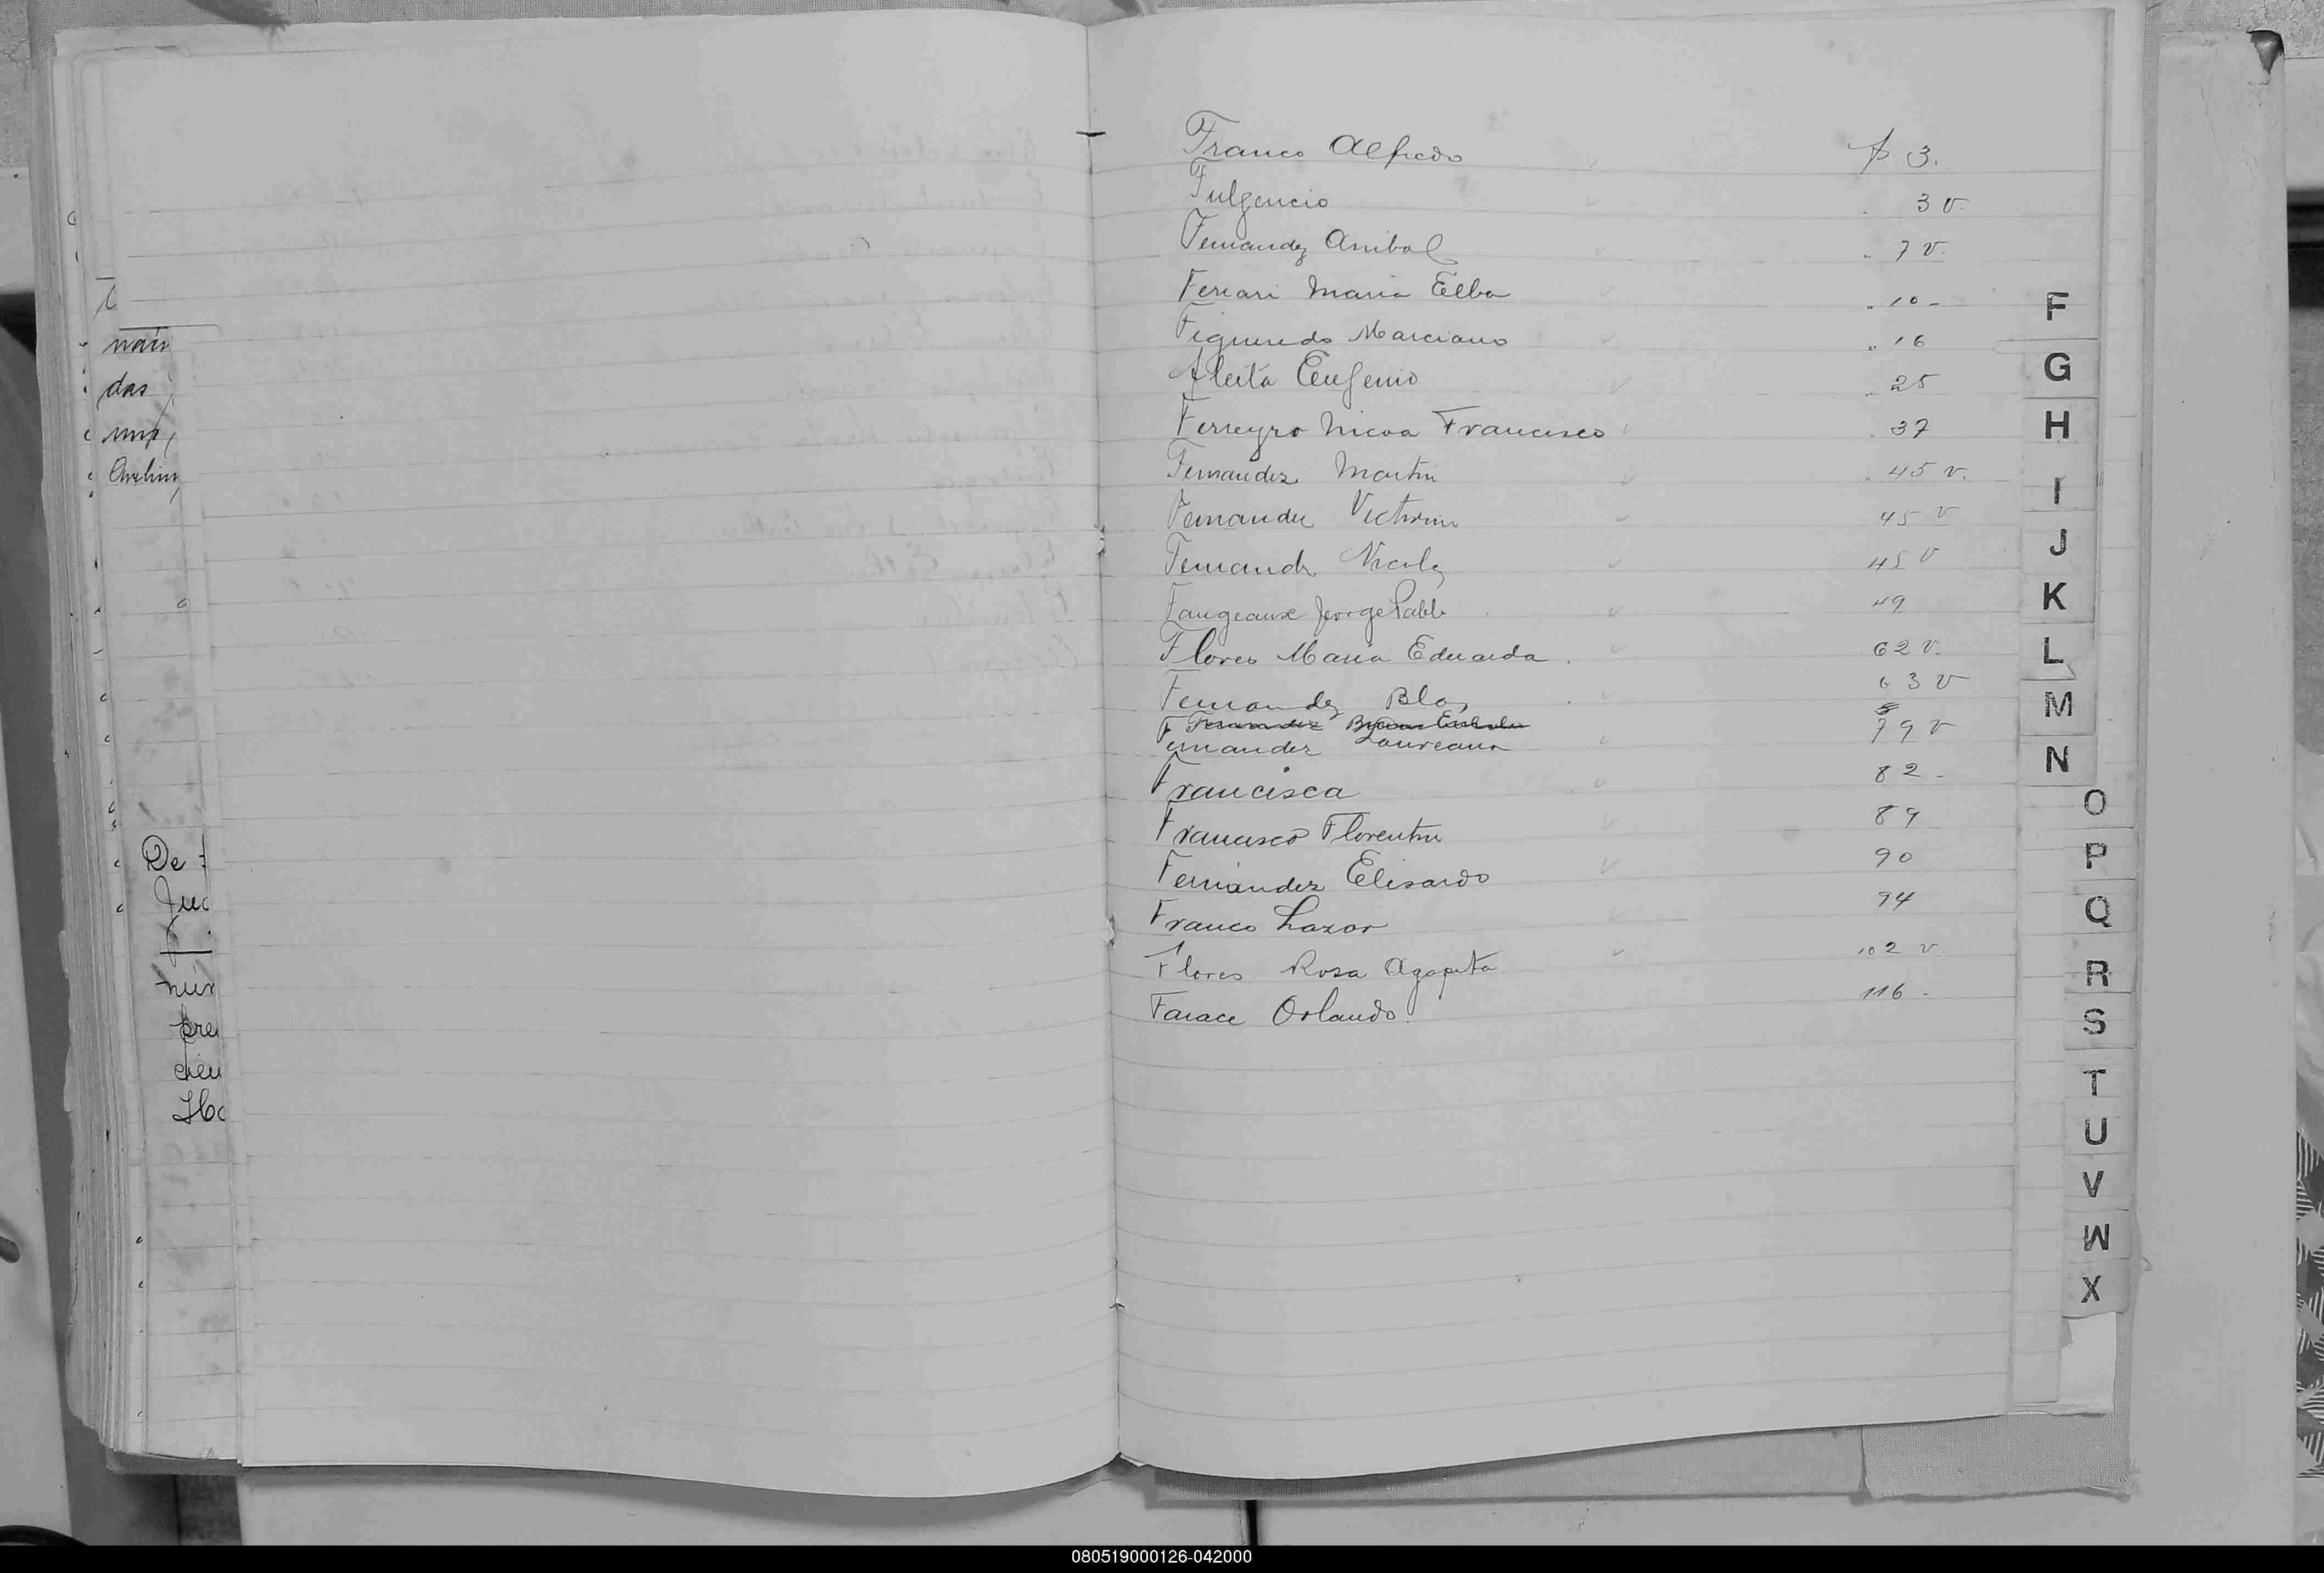 nań
das
Avelin
De
Juc
núr
pre
cieu
Ho
Franco Alfredo f 3.
Fulgencio 3 v.
Fernandez Anibal 7 v.
Ferrari Maria Elba 10 -
Figueredo Marciano 16
Fleita Eugenio 25
Ferreyro Nicoa Francisco 37
Fernandez Martin 45 v.
Fernandez Victorina 45 v
Fernandz Nicolz 45 v
Faugeaux Jorge Pablo 49
Flores María Eduarda . 62 v.
Fernandez Blas 63 v
Fernandez
Fernandez Laureana 79 v
Francisca 82 -
Francisco Florentin 89
Fernández Elisardo 90
Franco Lazar 94
Flores Rosa Agapita 102 v.
Farace Orlando. 116 -
F
G
H
I
J
K
L
M
N
O
P
Q
R
S
T
U
V
W
X
080519000126-042000